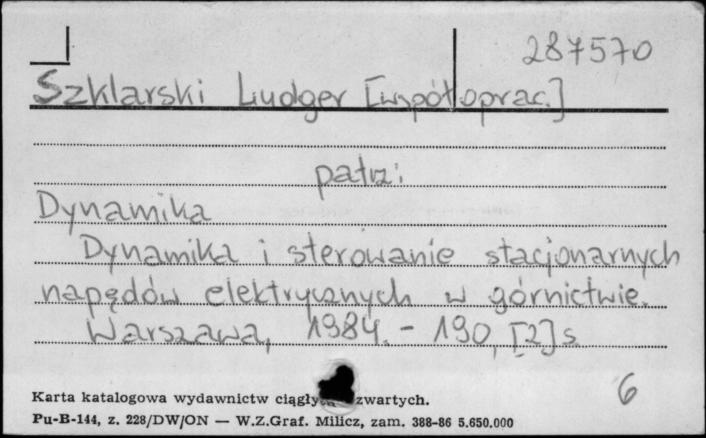 287570
Szklarski Ludger [współoprac.]
patrz:
Dynamika
Dynamika i sterowanie stacjonarnych
napędów elektrycznych w górnictwie.
Warszawa, 1984. - 190, [2] s.
6
Karta katalogowa wydawnictw zwartych.
Pu-B-144, z. 228/DW/ON — W.Z.Graf. Milicz, zam. 388-86 5.650.000